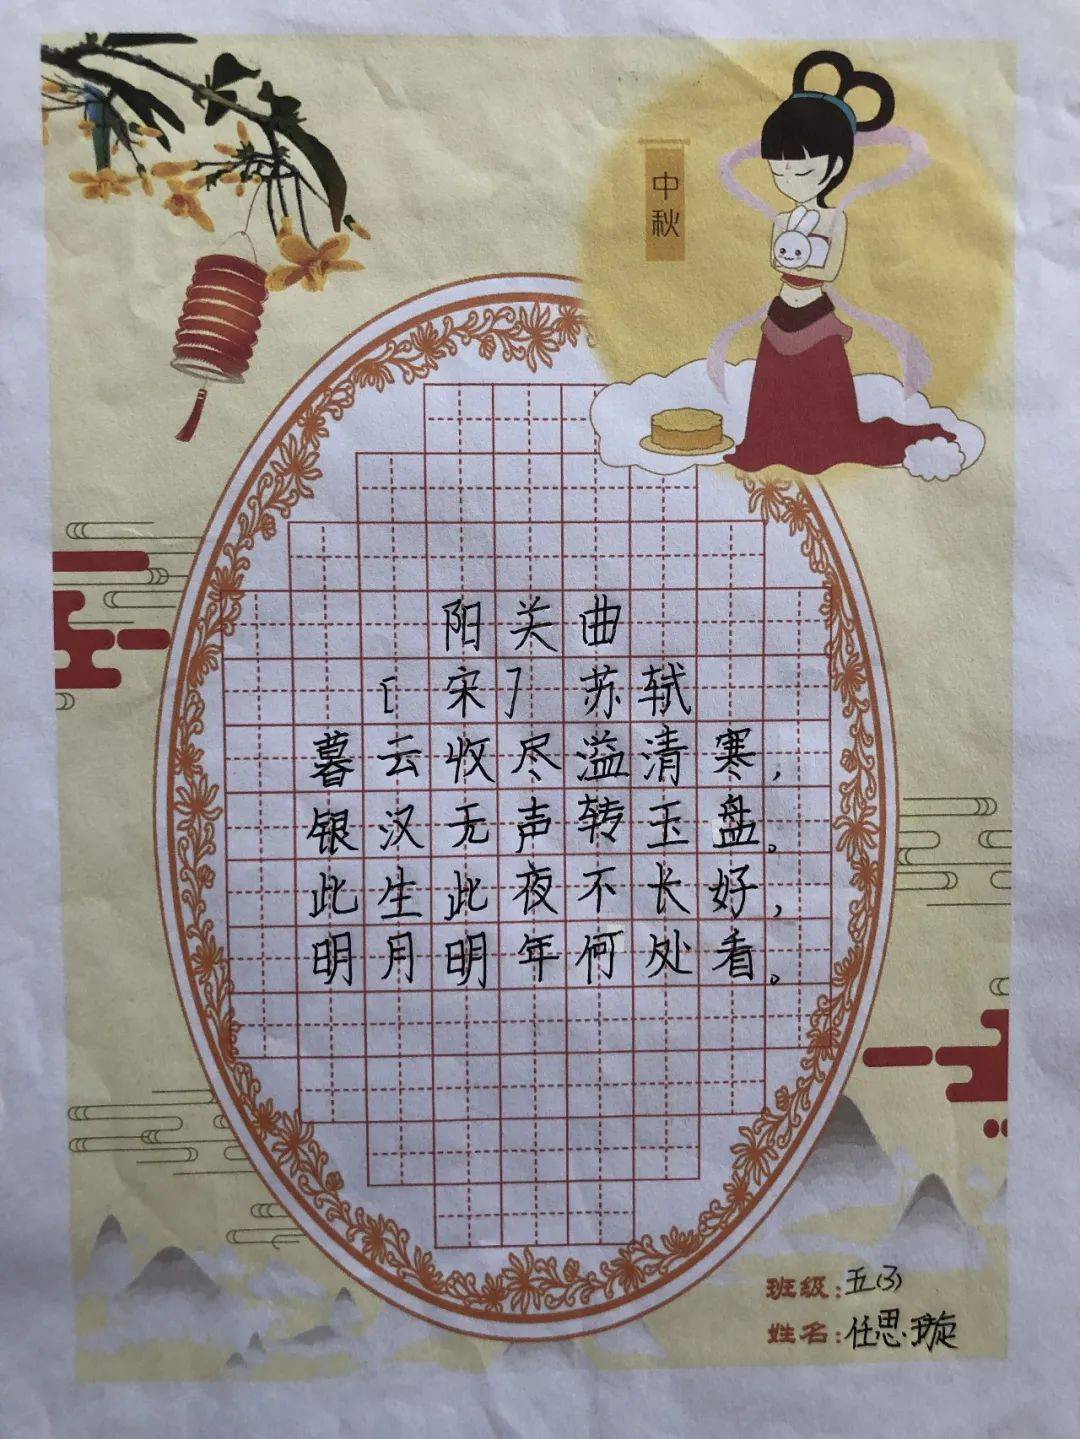 中秋
阳关曲
[宋]苏轼
暮云收尽溢清寒,
银汉无声转玉盘。
此生此夜不长好,
明月明年何处看。
班级:五(3)
姓名:任思璇